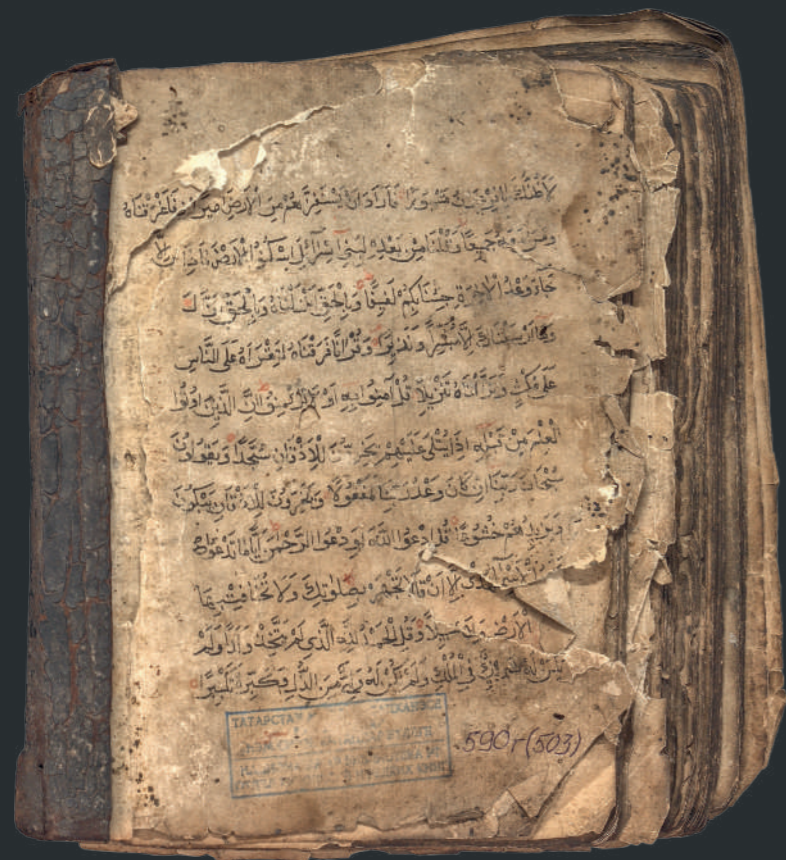 لَأَظُنُّكَ يَا فِرْعَوْنُ مَثْبُورًا فَأَرَادَ اَنْ يَسْتَفِزَّهُمْ مِنَ الْاَرْضِ فَاَغْرَقْنَاهُ
وَمَنْ مَعَهُ جَمِيعًا وَقُلْنَا مِنْ بَعْدِهِ لِبَنِى اِسْرَائِلَ اسْكُنُوا الْاَرْضَ فَاِذَا
جَاءَ وَعْدُ الْاٰخِرَةِ جِئْنَا بِكُمْ لَفِيفًا وَبِالْحَقِّ اَنْزَلْنَاهُ وَبِالْحَقِّ نَزَلَ
وَمَا اَرْسَلْنَاكَ اِلَّا مُبَشِّرًا وَنَذِيرًا وَقُرْاٰنًا فَرَقْنَاهُ لِتَقْرَاَهُ عَلَى النَّاسِ
عَلَى مُكْثٍ وَنَزَّلْنَاهُ تَنْزِيلًا قُلْ اٰمِنُوا بِهِ اَوْ لَا تُؤْمِنُوا اِنَّ الَّذِينَ اُوتُوا
الْعِلْمَ مِنْ قَبْلِهِ اِذَا يُتْلَى عَلَيْهِمْ يَخِرُّونَ لِلْاَذْقَانِ سُجَّدًا وَيَقُولُونَ
سُبْحَانَ رَبِّنَا اِنْ كَانَ وَعْدُ رَبِّنَا لَمَفْعُولًا وَيَخِرُّونَ لِلْاَذْقَانِ يَبْكُونَ
وَيَزِيدُهُمْ خُشُوعًا قُلِ ادْعُوا اللّٰهَ اَوِ ادْعُوا الرَّحْمٰنَ اَيًّا مَا تَدْعُوا
وَلَا تَجْهَرْ بِصَلَوتِكَ وَلَا تُخَافِتْ بِهَا
سَبِيلًا وَقُلِ الْحَمْدُ لِلّٰهِ الَّذِى لَمْ يَتَّخِذْ وَلَدًا وَلَمْ
يَكُنْ لَهُ شَرِيكٌ فِى الْمُلْكِ وَلَمْ يَكُنْ لَهُ وَلِىٌّ مِنَ الذُّلِّ وَكَبِّرْهُ تَكْبِيرًا
ТАТАРСТАН
590г(503)